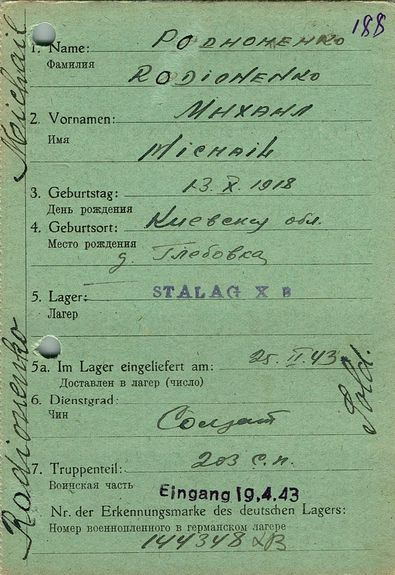 188
1. Name: РОДИОНЕНКО
Фамилия
RODIONENKO
2. Vornamen: МИХАИЛ
Имя
MICHAIL
3. Geburtstag: 13. X. 1918
День рождения
4. Geburtsort: Киевская обл.
Место рождения
д. Глебовка
5. Lager: STALAG X B
Лагерь
5a. Im Lager eingeliefert am: 25. II. 43
Доставлен в лагерь (число)
6. Dienstgrad:
Чин
Солдат
Sold.
7. Truppenteil: 203 с.п.
Воинская часть
Eingang 19.4.43
Nr. der Erkennungsmarke des deutschen Lagers:
Номер военнопленного в германском лагере
144348 XB
Rodionenko Michail